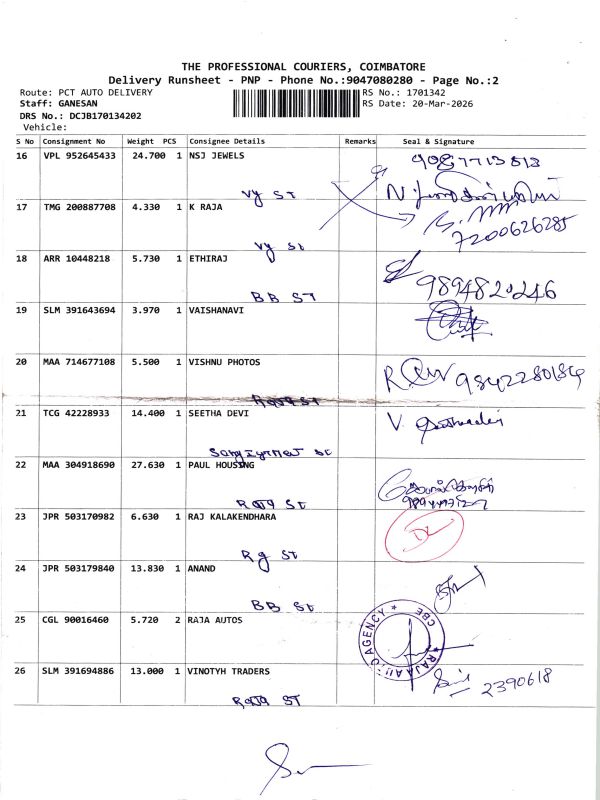 THE PROFESSIONAL COURIERS, COIMBATORE
Delivery Runsheet - PNP - Phone No.:9047080280 - Page No.:2
Route: PCT AUTO DELIVERY RS No.: 1701342
Staff: GANESAN RS Date: 20-Mar-2026
DRS No.: DCJB170134202
Vehicle:
S No Consignment No Weight PCS Consignee Details Remarks Seal & Signature
16 VPL 952645433 24.700 1 NSJ JEWELS
Vy St
17 TMG 200887708 4.330 1 K RAJA
7200626285
Vy St
18 ARR 10448218 5.730 1 ETHIRAJ
BB ST
19 SLM 391643694 3.970 1 VAISHANAVI
20 MAA 714677108 5.500 1 VISHNU PHOTOS
21 TCG 42228933 14.400 1 SEETHA DEVI
22 MAA 304918690 27.630 1 PAUL HOUSING
Raja St
23 JPR 503170982 6.630 1 RAJ KALAKENDHARA
Rg St
24 JPR 503179840 13.830 1 ANAND
BB St
25 CGL 90016460 5.720 2 RAJA AUTOS
RAJA AUTO AGENCY * CBE *
26 SLM 391694886 13.000 1 VINOTYH TRADERS
2390618
Raja ST